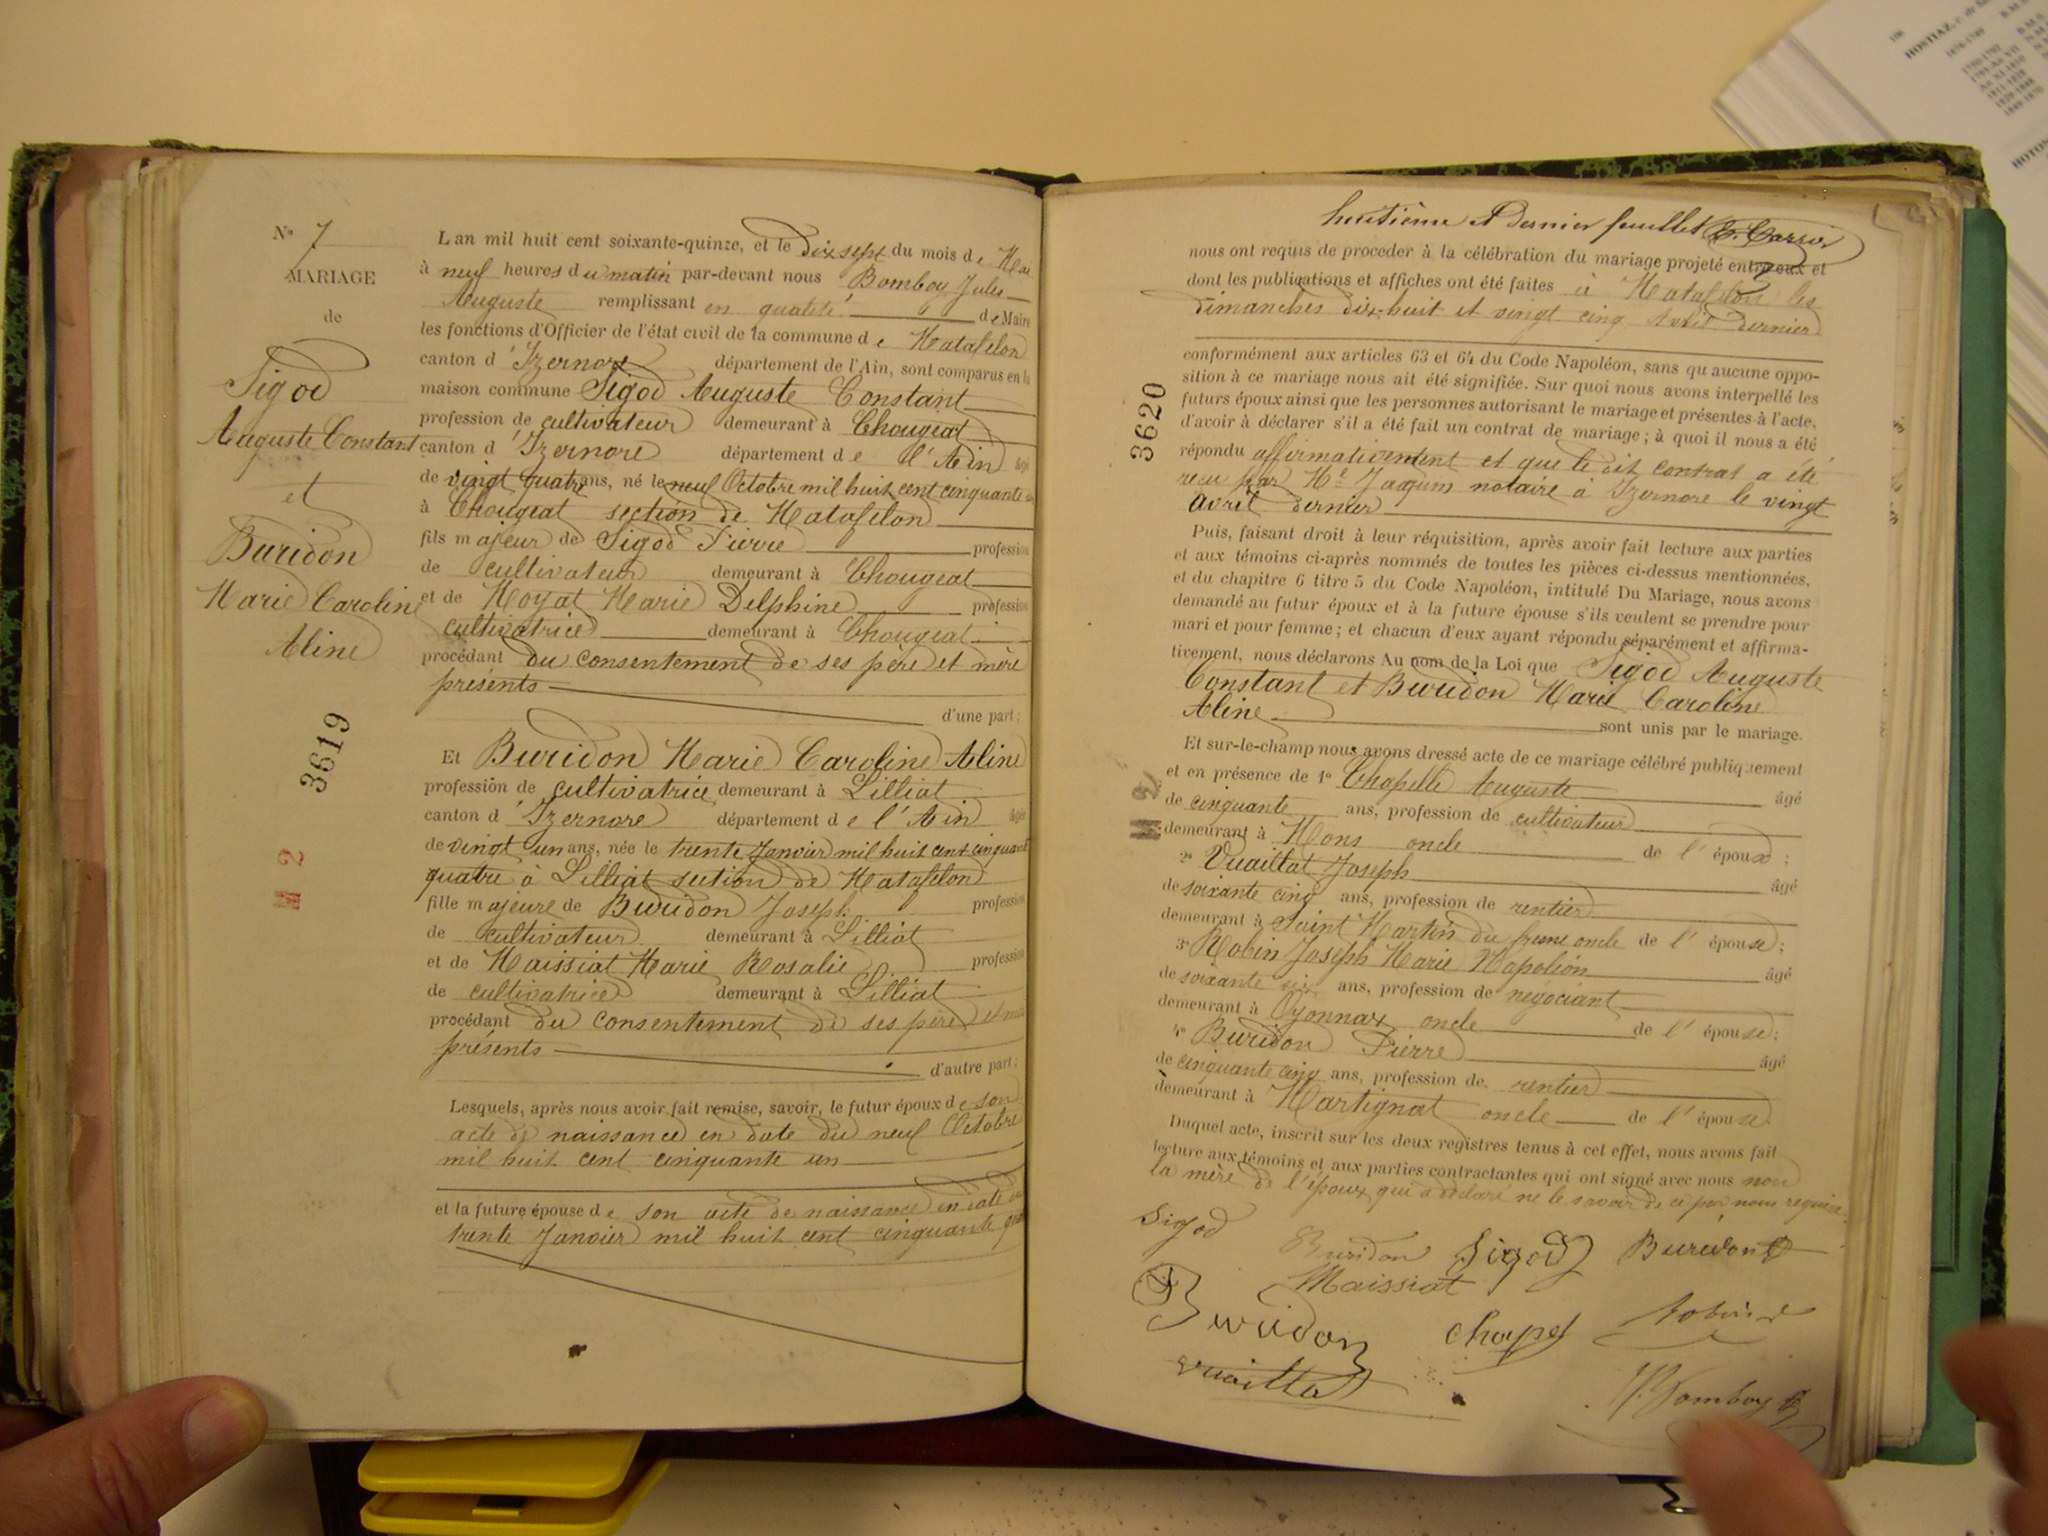 N° 7
MARIAGE
de
Sigod
Auguste Constant
et
Buridon
Marie Caroline
Aline
3619
M 2
L'an mil huit cent soixante-quinze, et le dix sept du mois de Mai
à neuf heures du matin par-devant nous Bomboy Jules
Auguste remplissant en qualité de Maire
les fonctions d'Officier de l'état civil de la commune de Matafelon
canton d'Izernore département de l'Ain, sont comparus en la
maison commune Sigod Auguste Constant
profession de cultivateur demeurant à Chougeat
canton d'Izernore département de l'Ain âgé
de vingt quatre ans, né le neuf Octobre mil huit cent cinquante un
à Chougeat section de Matafelon
fils majeur de Sigod Pierre profession
de cultivateur demeurant à Chougeat
et de Moyat Marie Delphine profession
cultivatrice demeurant à Chougeat
procédant du consentement de ses père et mère
présents
d'une part;
Et Buridon Marie Caroline Aline
profession de cultivatrice demeurant à Lilliat
canton d'Izernore département de l'Ain âgée
de vingt un ans, née le trente Janvier mil huit cent cinquante
quatre à Lilliat section de Matafelon
fille majeure de Buridon Joseph profession
de cultivateur demeurant à Lilliat
et de Maissiat Marie Rosalie profession
de cultivatrice demeurant à Lilliat
procédant du consentement de ses père et mère
présents
d'autre part;
Lesquels, après nous avoir fait remise, savoir, le futur époux de son
acte de naissance en date du neuf Octobre
mil huit cent cinquante un
et la future épouse de son acte de naissance en date du
trente Janvier mil huit cent cinquante quatre
huitième et dernier feuillet
nous ont requis de procéder à la célébration du mariage projeté entre eux et
dont les publications et affiches ont été faites à Matafelon les
dimanches dix-huit et vingt cinq Avril dernier
3620
conformément aux articles 63 et 64 du Code Napoléon, sans qu'aucune oppo-
sition à ce mariage nous ait été signifiée. Sur quoi nous avons interpellé les
futurs époux ainsi que les personnes autorisant le mariage et présentes à l'acte,
d'avoir à déclarer s'il a été fait un contrat de mariage; à quoi il nous a été
répondu affirmativement et que le dit contrat a été
reçu par Me Jacquin notaire à Izernore le vingt
avril dernier
Puis, faisant droit à leur réquisition, après avoir fait lecture aux parties
et aux témoins ci-après nommés de toutes les pièces ci-dessus mentionnées,
et du chapitre 6 titre 5 du Code Napoléon, intitulé Du Mariage, nous avons
demandé au futur époux et à la future épouse s'ils veulent se prendre pour
mari et pour femme; et chacun d'eux ayant répondu séparément et affirma-
tivement, nous déclarons Au nom de la Loi que Sigod Auguste
Constant et Buridon Marie Caroline
Aline sont unis par le mariage.
Et sur-le-champ nous avons dressé acte de ce mariage célébré publiquement
et en présence de 1° Chapelle Auguste âgé
de cinquante ans, profession de cultivateur
demeurant à Mons oncle de l'époux;
2° Vuaillat Joseph âgé
de soixante cinq ans, profession de rentier
demeurant à Saint Martin du fresne oncle de l'épouse;
3° Robin Joseph Marie Napoléon âgé
de soixante six ans, profession de négociant
demeurant à Oyonnax oncle de l'épouse;
4° Buridon Pierre âgé
de cinquante cinq ans, profession de rentier
demeurant à Martignat oncle de l'épouse.
Duquel acte, inscrit sur les deux registres tenus à cet effet, nous avons fait
lecture aux témoins et aux parties contractantes qui ont signé avec nous non
la mère de l'époux qui a déclaré ne le savoir de ce par nous requise.
Sigod Buridon Sigod Buridon
Maissiat
Buridon Chapel Robin
Vuaillat
Bomboy
HOSTIAZ,